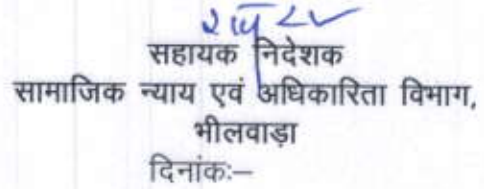 सहायक निदेशक
सामाजिक न्याय एवं अधिकारिता विभाग,
भीलवाड़ा
दिनांकः–